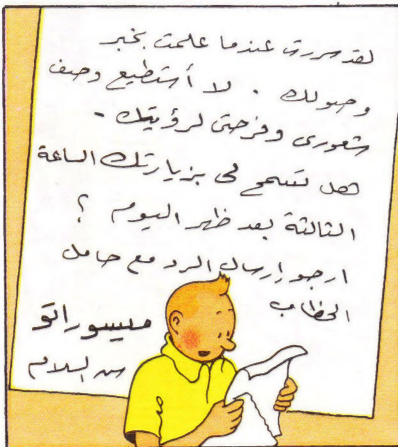 لقد سررت عندما علمت بخبر
وصولك . لا أستطيع وصف
شعورى وفرحتى لرؤيتك -
هل تسمح لى بزيارتك الساعة
الثالثة بعد ظهر اليوم ؟
ارجو إرسال الرد مع حامل
الخطاب
ميتسوراتو